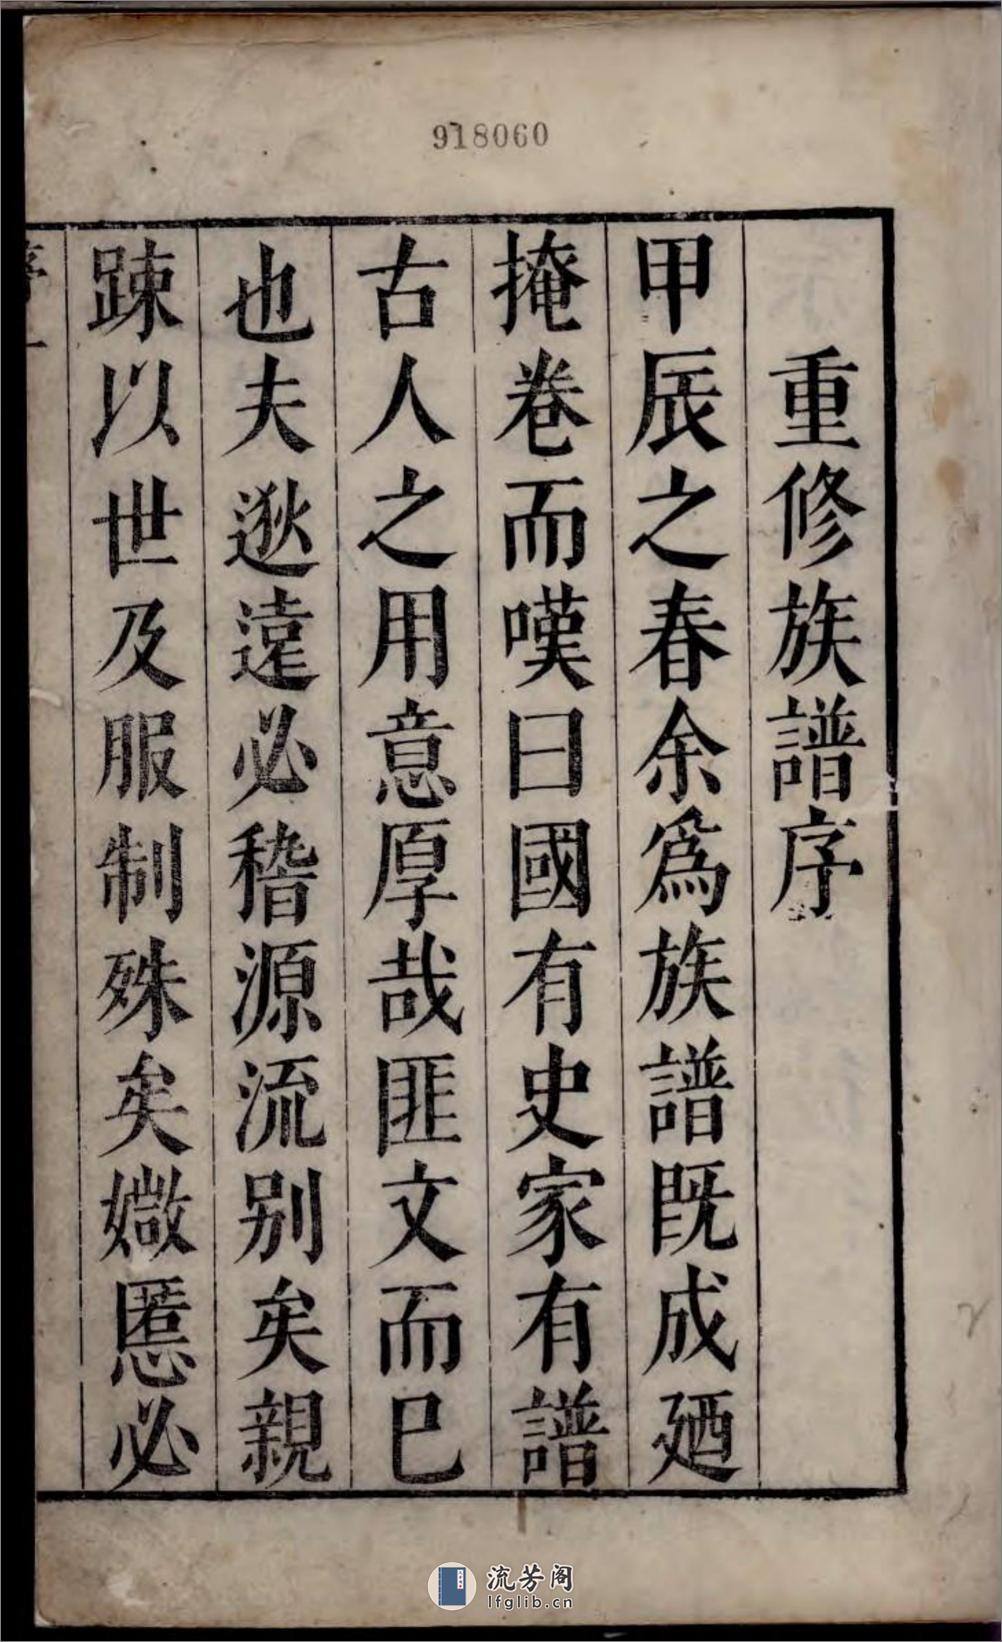 918060
重修族譜序
甲辰之春余爲族譜既成廼
掩卷而嘆曰國有史家有譜
古人之用意厚哉匪文而巳
也夫逖遠必稽源流别矣親
踈以世及服制殊矣媺慝必
序一
流芳阁
lfglib.cn